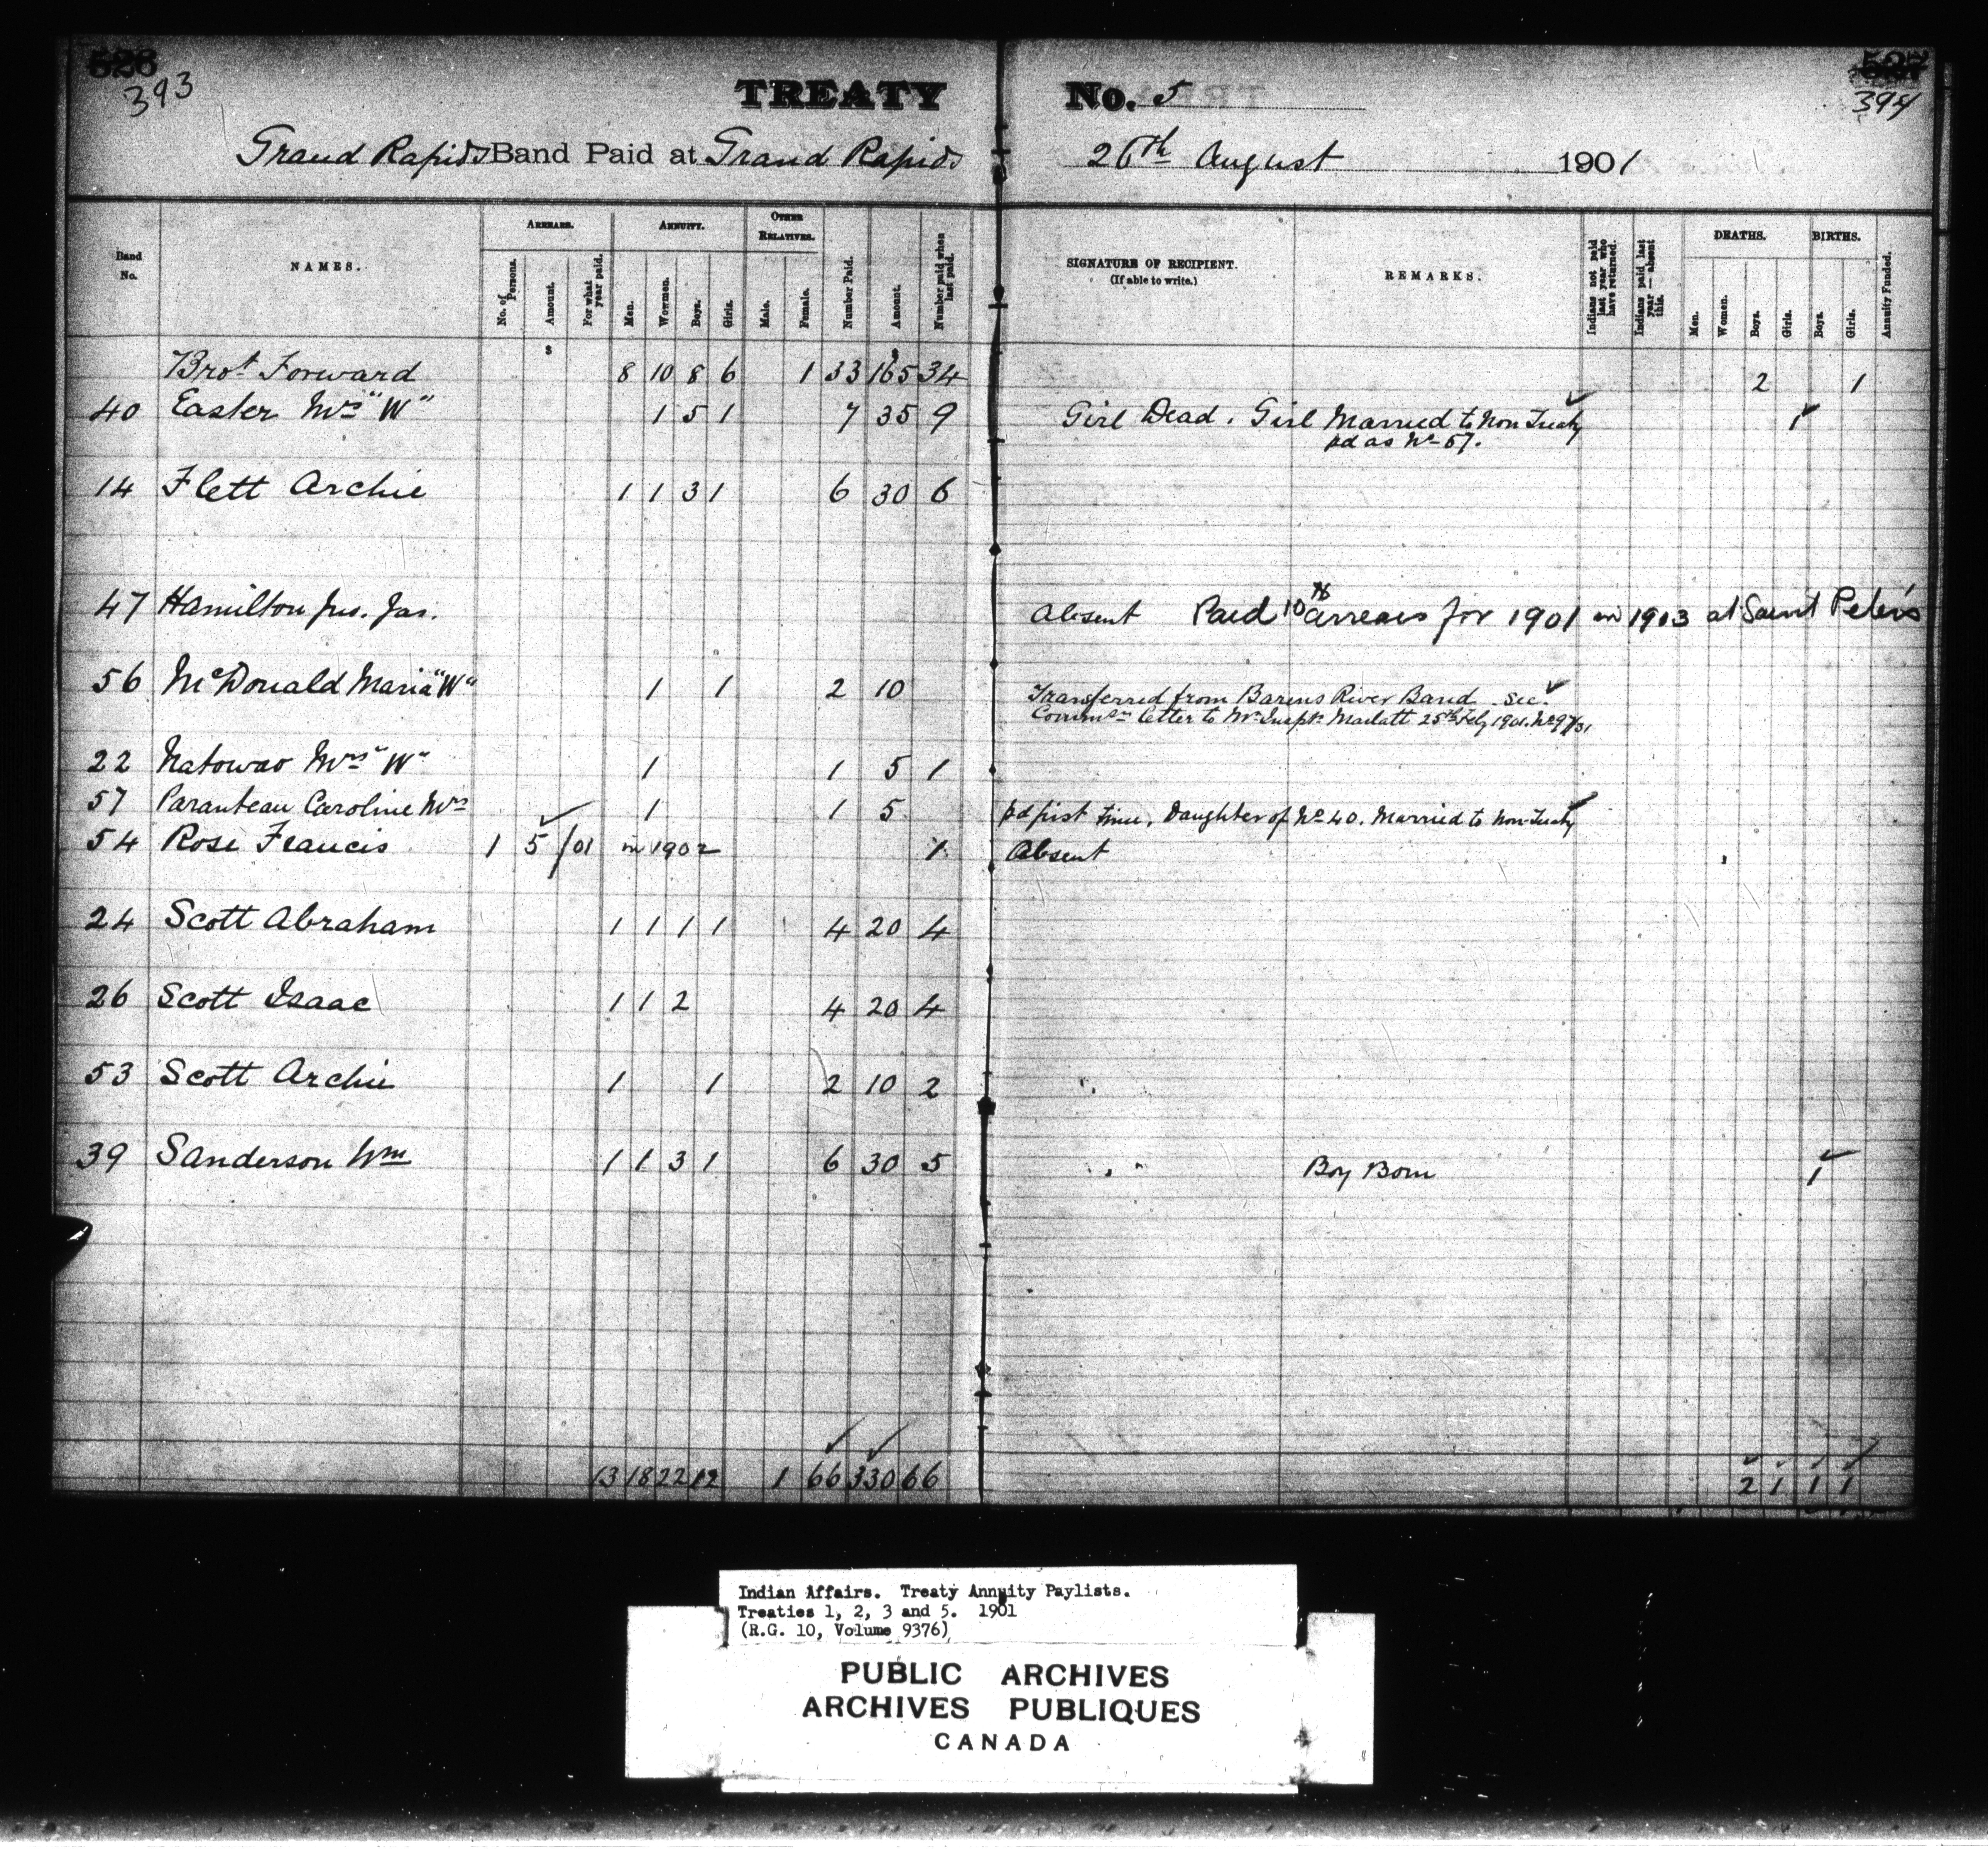 526
393
527
394
TREATY No. 5
Grand Rapids Band Paid at Grand Rapids 26th August 1901
Band No. NAMES. ARREARS. No. of Persons. Amount. For what year paid. ANNUITY. Men. Women. Boys. Girls. OTHER RELATIVES. Male. Female. Number Paid. Amount. Number paid when last paid. SIGNATURE OF RECIPIENT. (If able to write.) REMARKS. Indians not paid last year who have returned. Indians paid last year — absent this. DEATHS. Men. Women. Boys. Girls. BIRTHS. Boys. Girls. Annuity Funded.
$ $
Brot. Forward 8 10 8 6 1 33 165 34 2 1
40 Easter Mrs "W" 1 5 1 7 35 9 Girl Dead. Girl Married to Non Treaty 1
pd as No 57.
14 Flett Archie 1 1 3 1 6 30 6
47 Hamilton Jno. Jas. Absent Paid 10 arrears for 1901 in 1903 at Saint Peter's
56 McDonald Maria "W" 1 1 2 10 Transferred from Barens River Band. See
Commrs letter to Mr Inspr. Marlatt 25th Feby 1901. No 97/31
22 Natowao Mrs "W" 1 1 5 1
57 Paranteau Caroline Mrs 1 1 5 pd first time. Daughter of No 40. Married to Non-Treaty
54 Rose Francis 1 5 /01 in 1902 1 Absent
24 Scott Abraham 1 1 1 1 4 20 4
26 Scott Isaac 1 1 2 4 20 4
53 Scott Archie 1 1 2 10 2
39 Sanderson Wm 1 1 3 1 6 30 5 Boy Born 1
13 18 22 12 1 66 330 66 2 1 1 1
Indian Affairs. Treaty Annuity Paylists.
Treaties 1, 2, 3 and 5. 1901
(R.G. 10, Volume 9376)
PUBLIC ARCHIVES
ARCHIVES PUBLIQUES
CANADA